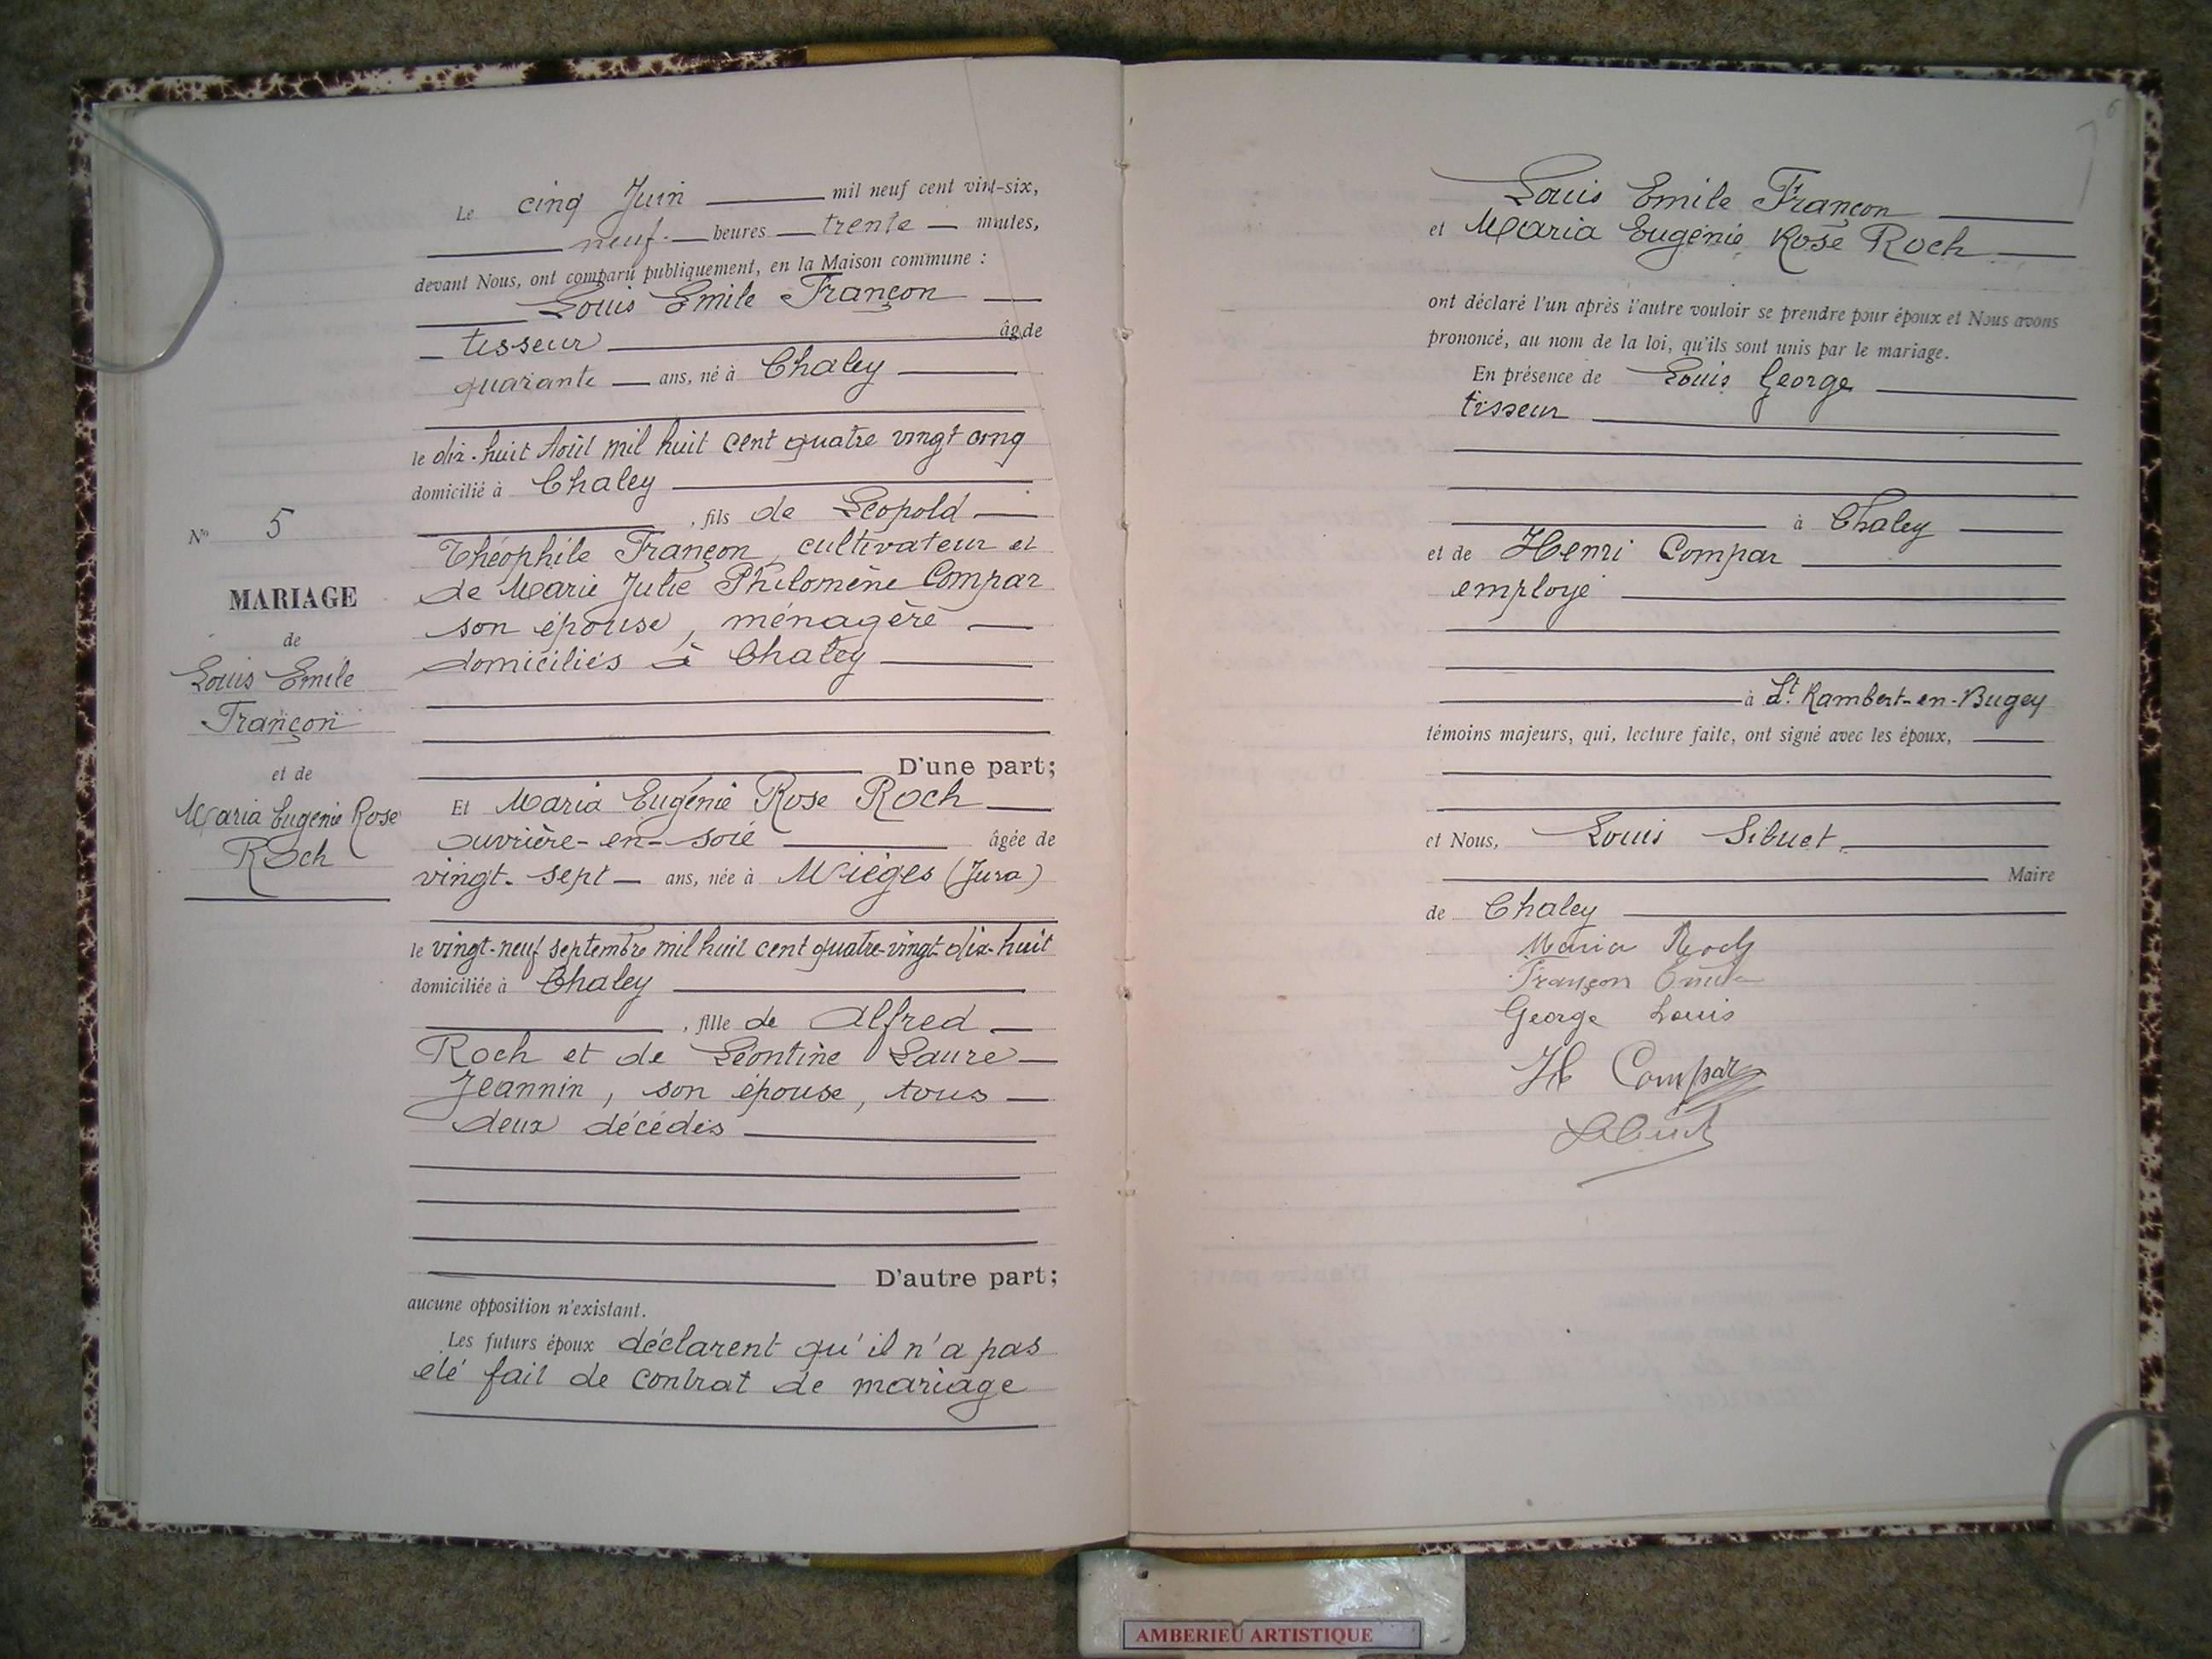 Le cinq Juin mil neuf cent vint-six,
neuf heures trente mutes,
devant Nous, ont comparu publiquement, en la Maison commune :
Louis Emile Françon
tisseur âgde
quarante ans, né à Chaley
le dix-huit Août mil huit cent quatre vingt cinq
domicilié à Chaley
, fils de Léopold
Théophile Françon, cultivateur et
de Marie Julie Philomène Compar
son épouse, ménagère
domiciliés à Chaley
D'une part;
Et Maria Eugénie Rose Roch
ouvrière-en-soie âgée de
vingt-sept ans, née à Mièges (Jura)
le vingt-neuf septembre mil huit cent quatre-vingt-dix-huit
domiciliée à Chaley
, fille de Alfred
Roch et de Léontine Laure
Jeannin, son épouse, tous
deux décédés
D'autre part;
aucune opposition n'existant.
Les futurs époux déclarent qu'il n'a pas
été fait de contrat de mariage
No 5
MARIAGE
de
Louis Emile
Françon
et de
Maria Eugénie Rose
Roch
6
Louis Emile Françon
et Maria Eugénie Rose Roch
ont déclaré l'un après l'autre vouloir se prendre pour époux et Nous avons
prononcé, au nom de la loi, qu'ils sont unis par le mariage.
En présence de Louis George
tisseur
à Chaley
et de Henri Compar
employé
à St Rambert-en-Bugey
témoins majeurs, qui, lecture faite, ont signé avec les époux,
et Nous, Louis Sibuet
Maire
de Chaley
Maria Roch
Françon Emile
George Louis
H Compar
Sibuet
AMBERIEU ARTISTIQUE